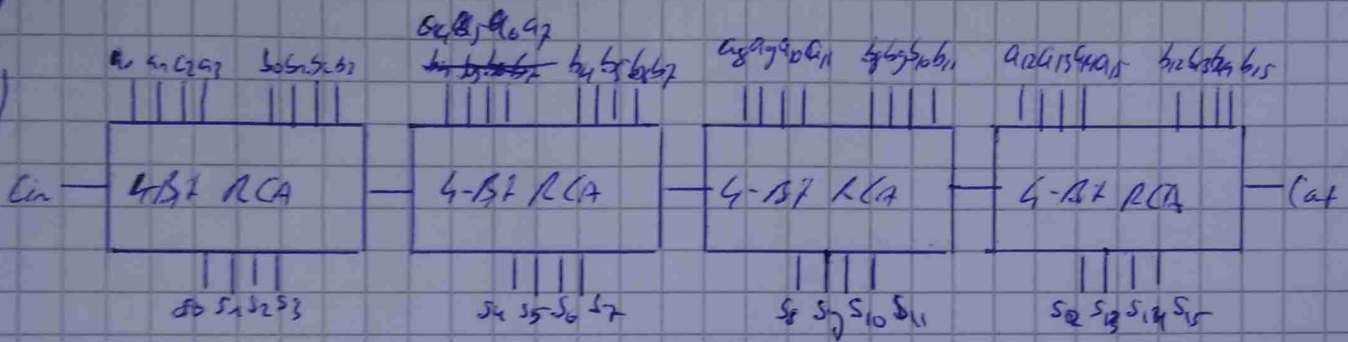 a4 a5 a6 a7
a0 a1 a2 a3 b0 b1 b2 b3 b4 b5 b6 b7 a8 a9 a10 a11 b8 b9 b10 b11 a12 a13 a14 a15 b12 b13 b14 b15
Cin 4Bit RCA 4-Bit RCA 4-Bit RCA 4-Bit RCA Cout
s0 s1 s2 s3 s4 s5 s6 s7 s8 s9 s10 s11 s12 s13 s14 s15